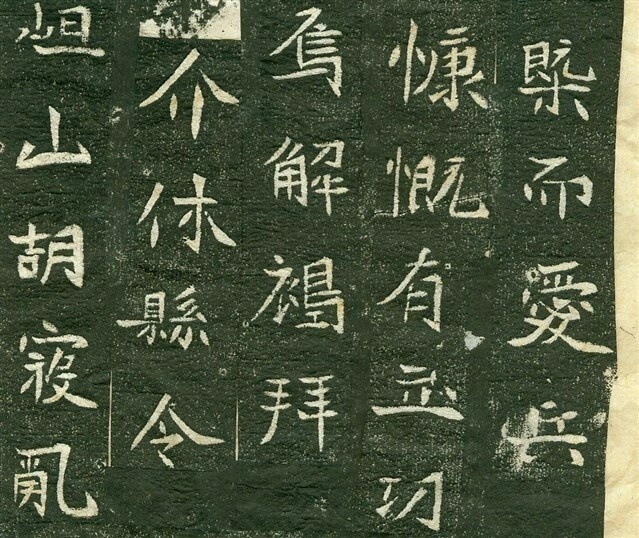 槩而愛兵
慷慨有立功
焉解褐拜
介休縣令
山胡寇亂